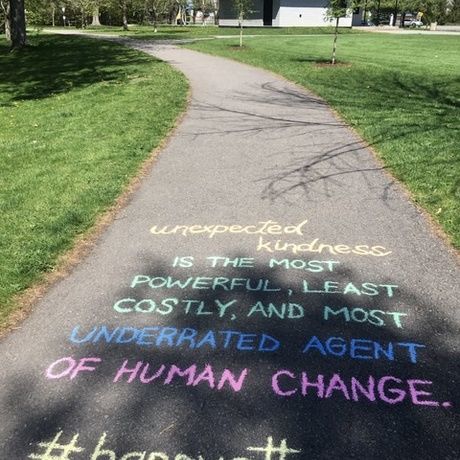 unexpected
kindness
IS THE MOST
POWERFUL, LEAST
COSTLY, AND MOST
UNDERRATED AGENT
OF HUMAN CHANGE.